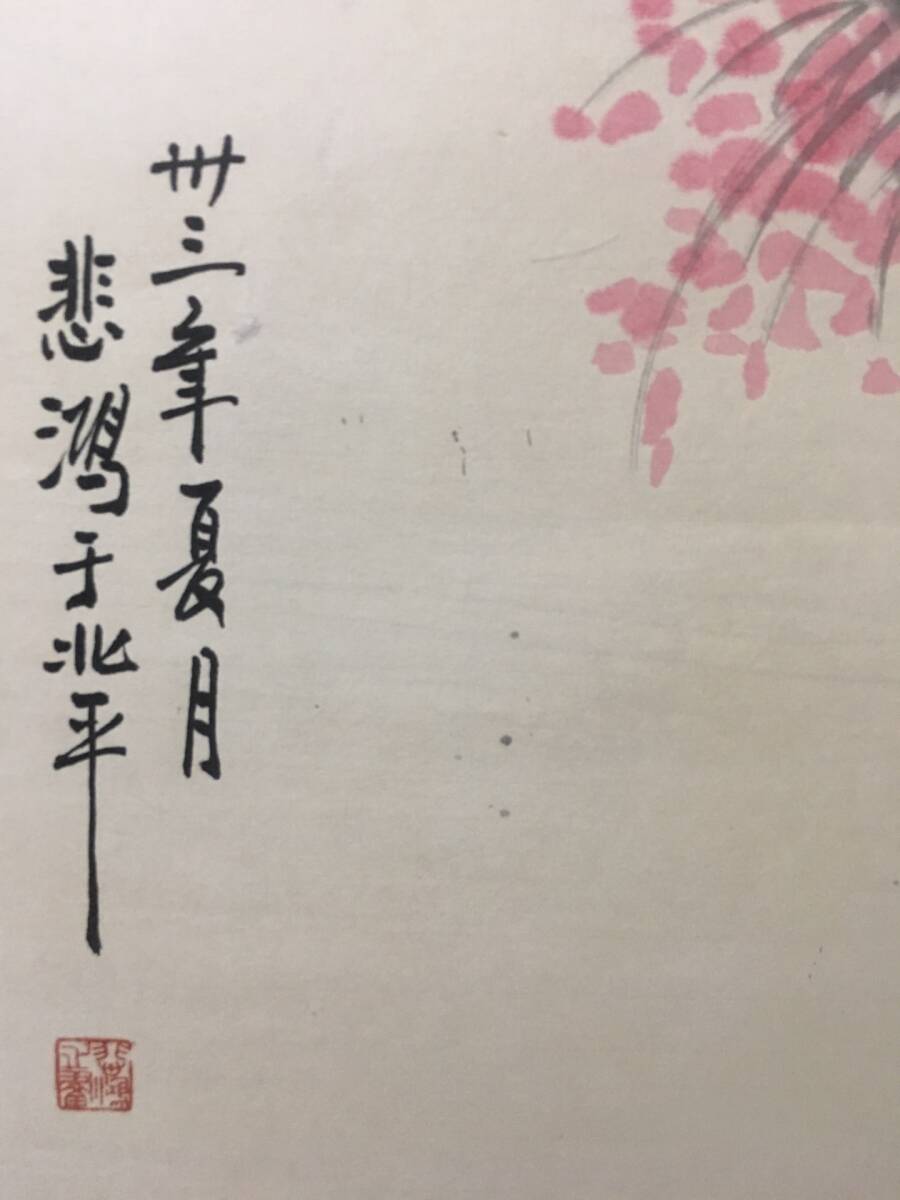 卅三年夏月
悲鴻于北平